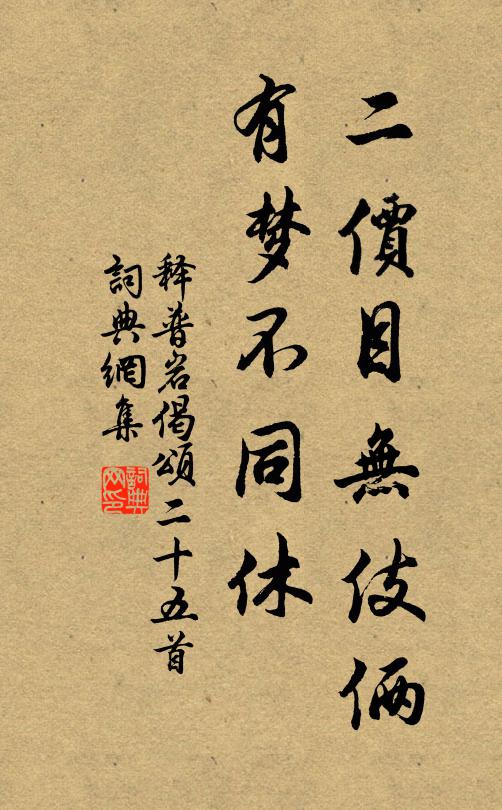 二價目無伎倆
有梦不同休
释普岩偈頌二十五首
詞典網集
詞典网印